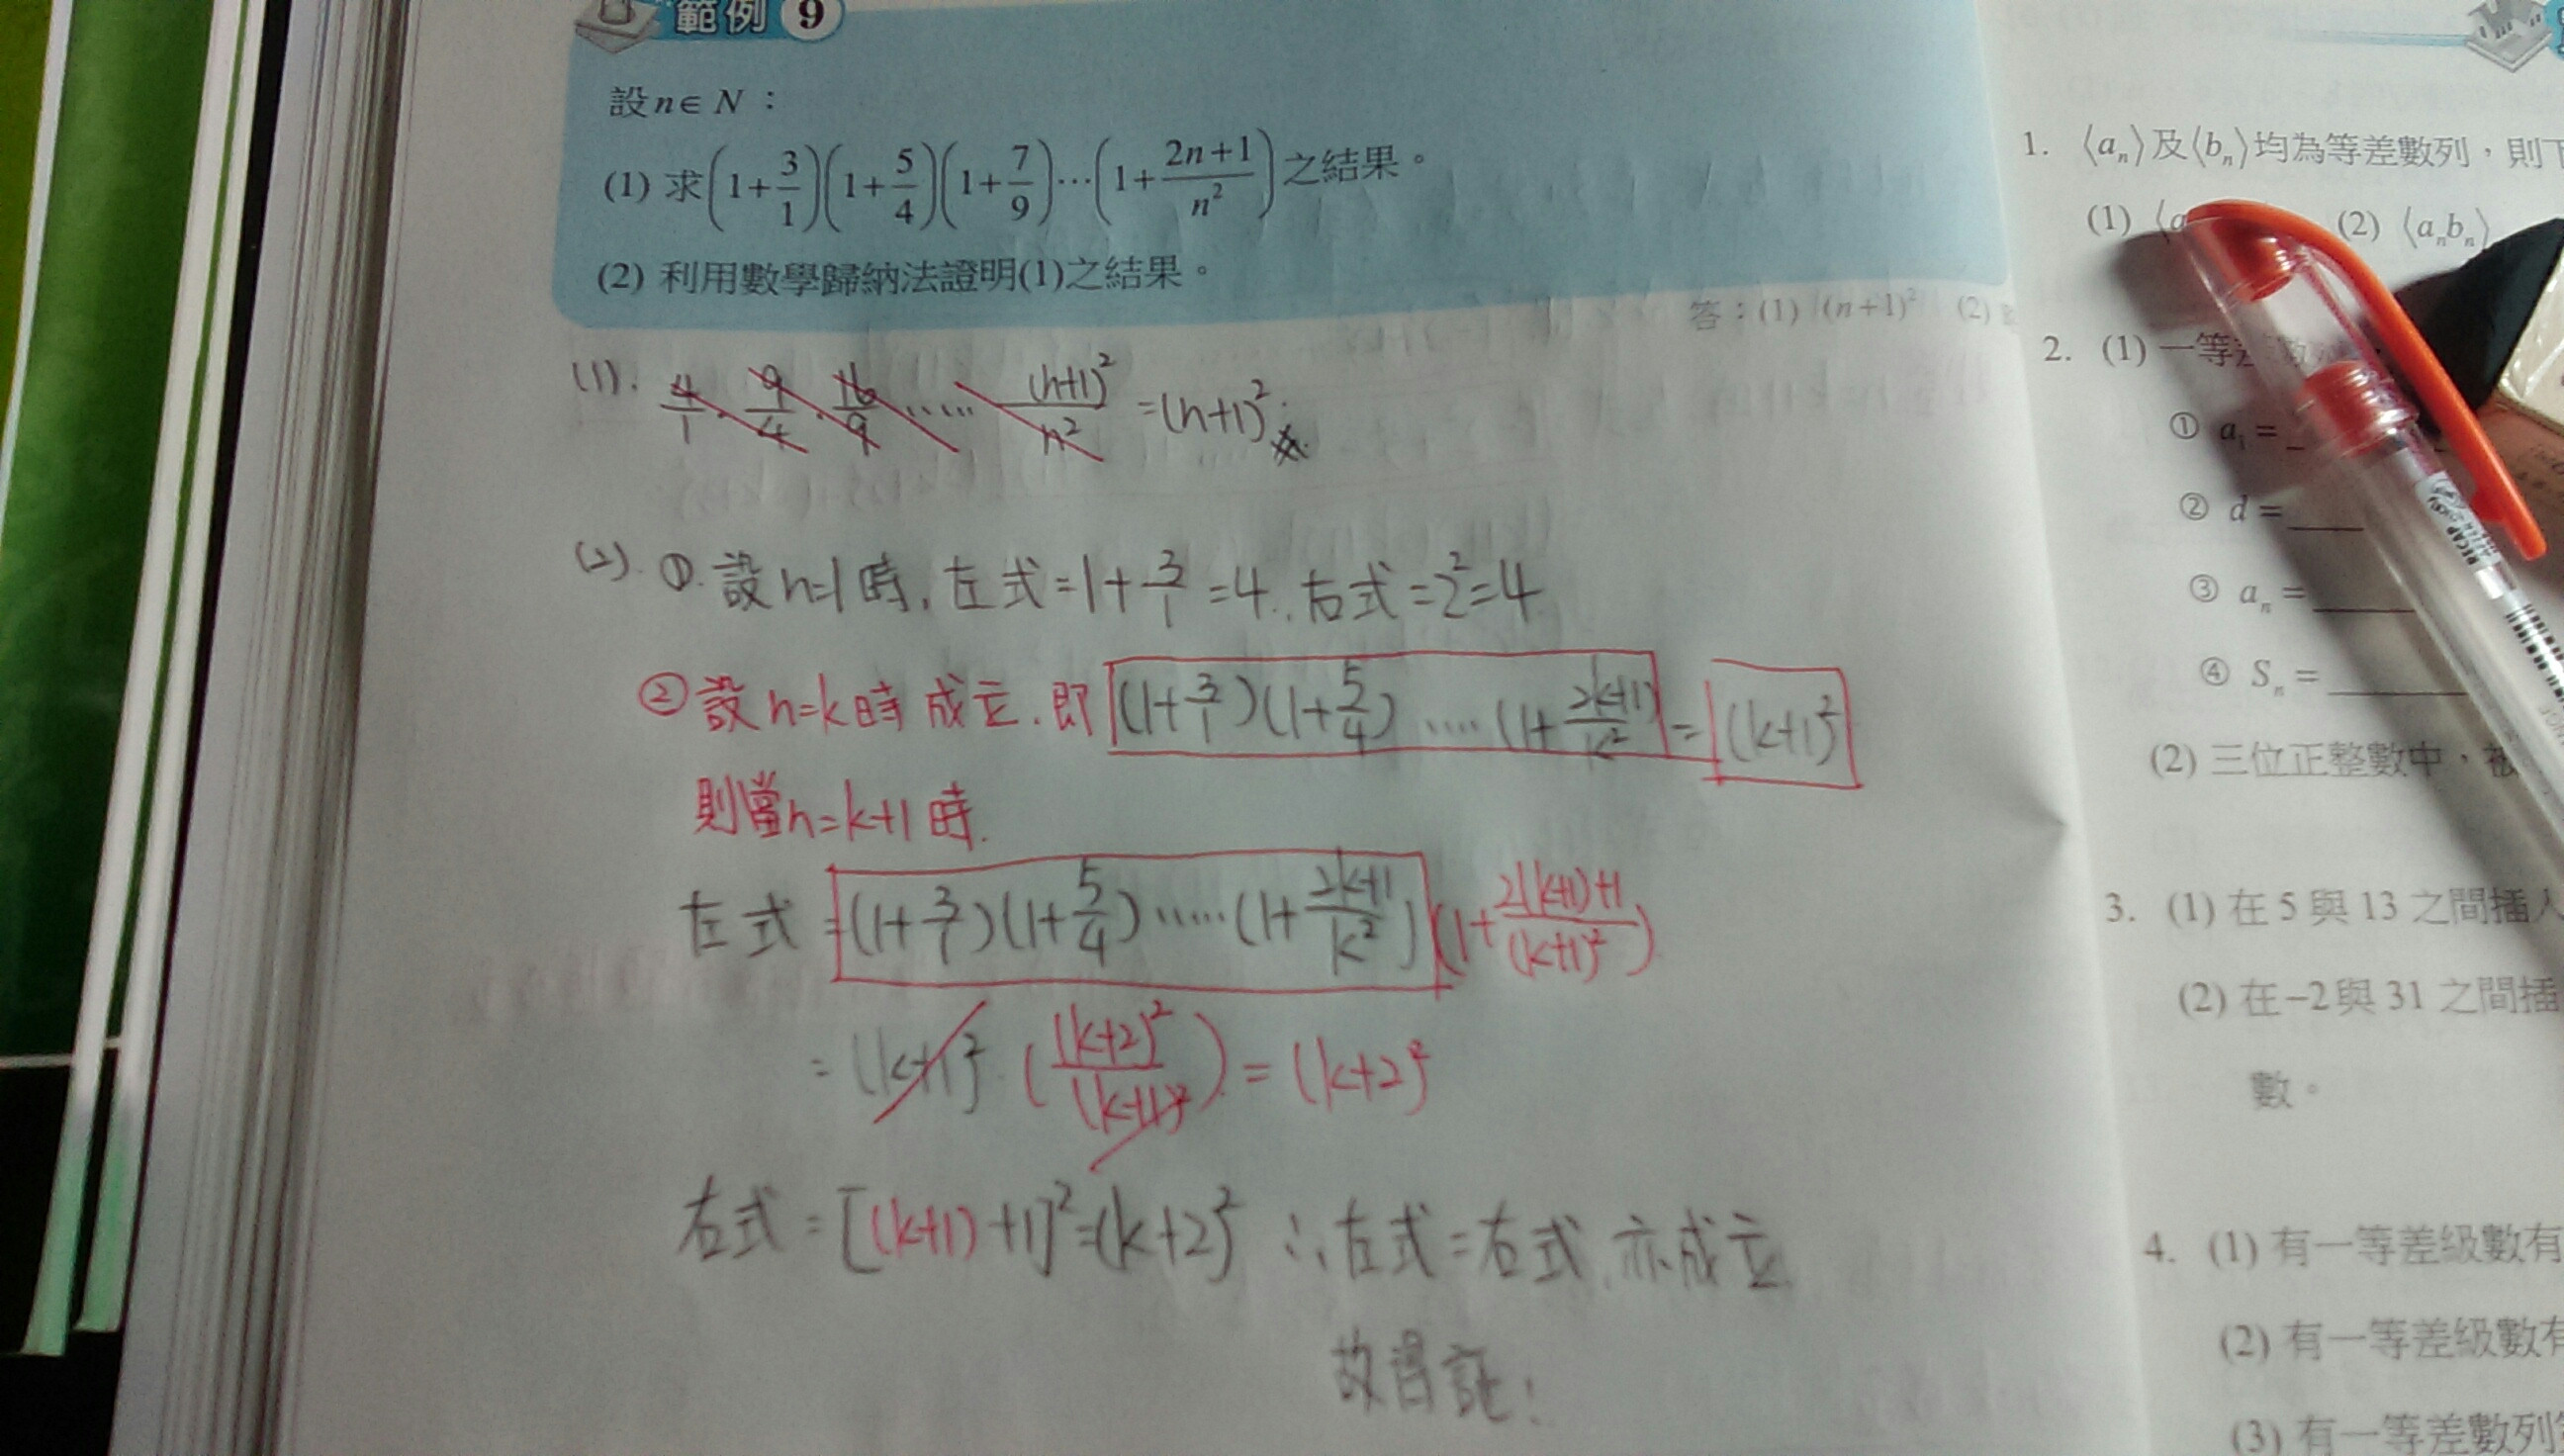 範例 9
設 n∈N：
(1) 求(1+3/1)(1+5/4)(1+7/9)⋯(1+(2n+1)/n²)之結果。
(2) 利用數學歸納法證明(1)之結果。
答：(1) (n+1)² (2)
(1). 4/1 · 9/4 · 16/9 ⋯⋯ (n+1)²/n² = (n+1)²
(2). ①. 設 n=1 時, 左式=1+3/1=4. 右式=2²=4
② 設 n=k 時 成立. 即 (1+3/1)(1+5/4) ⋯⋯ (1+(2k+1)/k²) = (k+1)²
則當 n=k+1 時.
左式 = (1+3/1)(1+5/4)⋯⋯(1+(2k+1)/k²)(1+(2(k+1)+1)/(k+1)²)
= (k+1)² · ((k+2)²/(k+1)²) = (k+2)²
右式 = [(k+1)+1]²=(k+2)² ∴左式=右式, 亦成立
故得証!
1. ⟨aₙ⟩及⟨bₙ⟩均為等差數列，則下
(1) ⟨a (2) ⟨aₙbₙ⟩
2. (1) 一等差
① a₁ = _
② d = ____
③ aₙ = ____
④ Sₙ = ____
(2) 三位正整數中，被
3. (1) 在 5 與 13 之間插入
(2) 在 −2 與 31 之間插
數。
4. (1) 有一等差級數有
(2) 有一等差級數有
(3) 有一等差數列